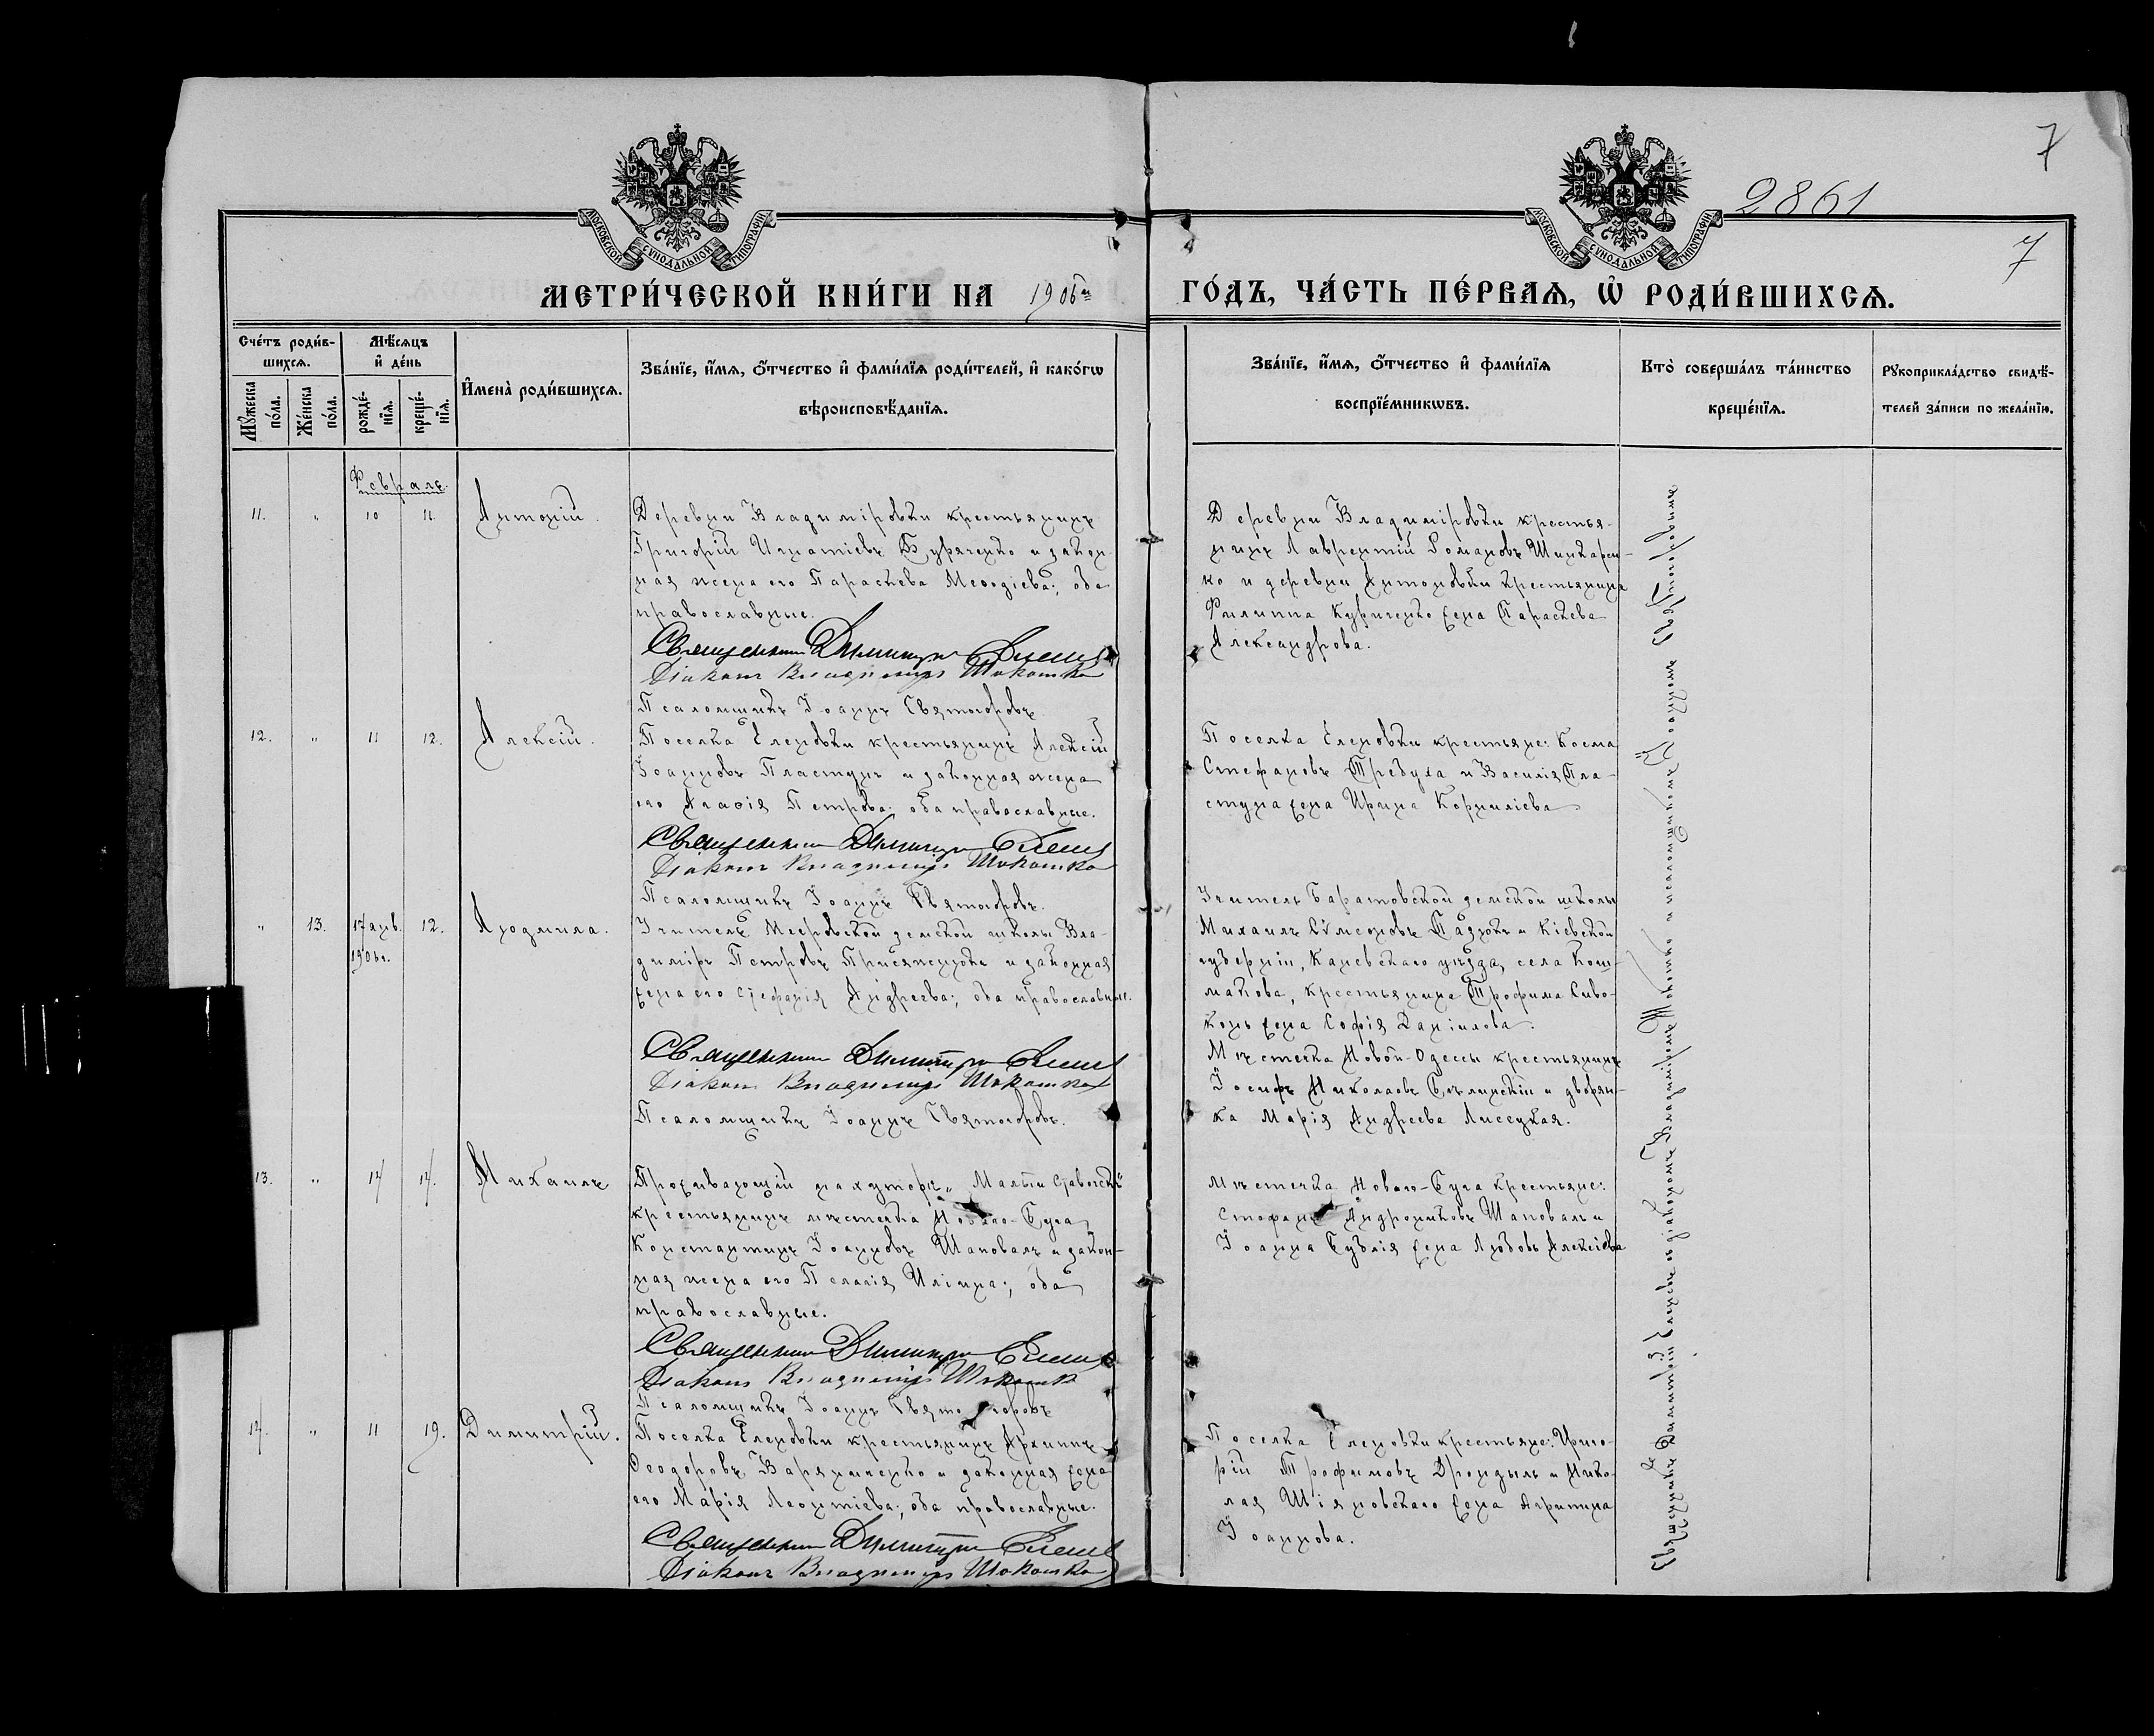 7
2861
7
МОСКОВСКОЙ СѴНОДАЛЬНОЙ ТИПОГРАФІИ
МОСКОВСКОЙ СѴНОДАЛЬНОЙ ТИПОГРАФІИ
МЕТРИ́ЧЕСКОЙ КНИ́ГИ НА 1906й ГО́ДЪ, ЧА́СТЬ ПЕ́РВАѦ, Ѡ РОДИ́ВШИХСѦ.
Сче́тъ роди́в-
шихсѧ.
Мꙋжеска по́ла.
Же́нска по́ла.
Мѣ́сѧцъ
и҆ де́нь
рожде́-
нїѧ.
креще́-
нїѧ.
И҆мена̀ роди́вшихсѧ.
Зва́нїе, и҆́мѧ, ѻ҆́тчество и҆ фами́лїѧ роди́телей, и҆ како́гѡ
вѣроисповѣ́данїѧ.
Зва́нїе, и҆́мѧ, ѻ҆́тчество и҆ фами́лїѧ
воспрїе́мникѡвъ.
Кто̀ соверша́лъ та́инство
креще́нїѧ.
Рꙋкоприкла́дство свидѣ́-
телей за́писи по жела́нїю.
Февраль.
11. " 10 11. Антоній.
Деревни Владиміровки крестьянинъ
Григорій Игнатіевъ Буряченко и закон-
ная жена его Параскева Меѳодіева; оба
православные.
Священникъ Димитрій
Діаконъ Владиміръ Шокотко
Псаломщикъ Іоаннъ Святогоровъ
Деревни Владиміровки крестья-
нинъ Лаврентій Романовъ Шинкарен-
ко и деревни Антоновки крестьянина
Филиппа Куриченко жена Параскева
Александрова.
12. " 11 12. Алексій.
Поселка Еленовки крестьянинъ Алексій
Іоанновъ Пластунъ и законная жена
его Агаѳія Петрова; оба православные.
Священникъ Димитрій
Діаконъ Владиміръ Шокотко
Псаломщикъ Іоаннъ Святогоровъ.
Поселка Еленовки крестьяне: Косма
Стефановъ Требуха и Василія Пла-
стуна жена Ирина Корниліева
" 13. 17 янв. 1906 г. 12. Людмила.
Учитель Мееровской земской школы Вла-
диміръ Петровъ Присяжнюкъ и законная
жена его Стефанія Андреева; оба православные.
Священникъ Димитрій
Діаконъ Владиміръ Шокотко
Псаломщикъ Іоаннъ Святогоровъ.
Учитель Баратовской земской школы
Михаилъ Сѵмеоновъ и Кіевской
губерніи, Каневскаго уѣзда, села Кош-
макова, крестьянина Трофима Сиво-
конь жена Софія Даніилова.
Мѣстечка Новой-Одессы крестьянинъ
Іосифъ Николаевъ Бѣлинскій и дворян-
ка Марія Андреева Лисецкая.
13. " 14 14. Михаилъ
Проживающій на хуторѣ „Малый
крестьянинъ мѣстечка Новаго-Буга
Константинъ Іоанновъ Шаповалъ и закон-
ная жена его Пелагія Иліина; оба
православные.
Священникъ Димитрій
Діаконъ Владиміръ Шокотко
Псаломщикъ Іоаннъ Святогоровъ
Мѣстечка Новаго-Буга крестьяне:
Стефанъ Андрониковъ Шаповалъ и
Іоанна Бублія жена Любовь Алексіева
14. " 11 19. Димитрій.
Поселка Еленовки крестьянинъ Архиппъ
Ѳеодоровъ и законная жена
его Марія Леонтіева; оба православные.
Священникъ Димитрій
Діаконъ Владиміръ Шокотко
Поселка Еленовки крестьяне: Григо-
рій Трофимовъ Дрондыль и Нико-
лая Шіяновскаго жена Агрипина
Іоаннова.
Священникъ Димитрій съ діакономъ Владиміромъ Шокотко и псаломщикомъ Іоанномъ Святогоровымъ